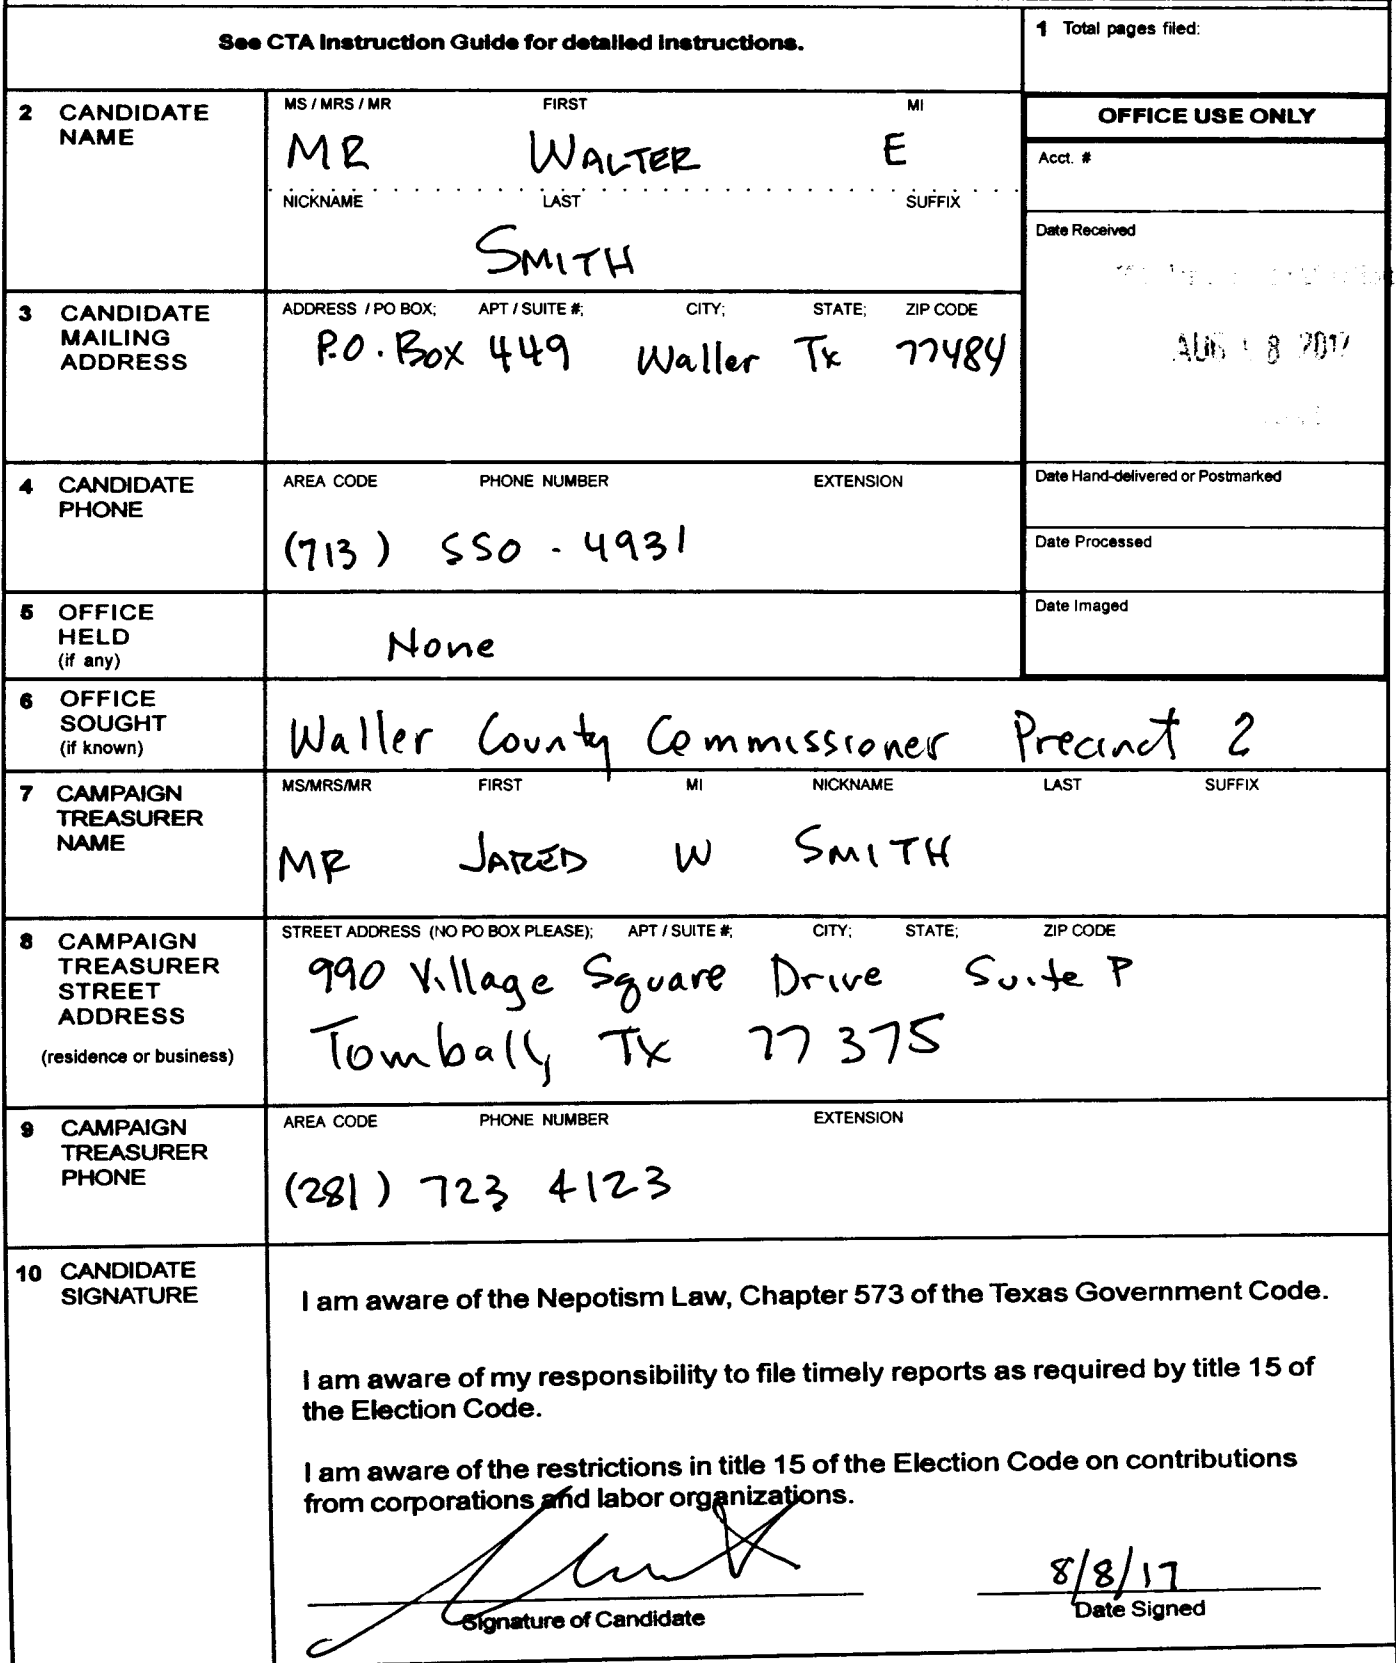 See CTA Instruction Guide for detailed instructions.
1 Total pages filed:
2 CANDIDATE NAME
MS / MRS / MR FIRST MI
MR WALTER E
NICKNAME LAST SUFFIX
SMITH
OFFICE USE ONLY
Acct. #
Date Received
AUG 8 2017
3 CANDIDATE MAILING ADDRESS
ADDRESS / PO BOX; APT / SUITE #; CITY; STATE; ZIP CODE
P.O. Box 449 Waller Tx 77484
4 CANDIDATE PHONE
AREA CODE PHONE NUMBER EXTENSION
(713) 550 - 4931
Date Hand-delivered or Postmarked
Date Processed
5 OFFICE HELD (if any)
None
Date Imaged
6 OFFICE SOUGHT (if known)
Waller County Commissioner Precinct 2
7 CAMPAIGN TREASURER NAME
MS/MRS/MR FIRST MI NICKNAME LAST SUFFIX
MR JARED W SMITH
8 CAMPAIGN TREASURER STREET ADDRESS (residence or business)
STREET ADDRESS (NO PO BOX PLEASE); APT / SUITE #; CITY; STATE; ZIP CODE
990 Village Square Drive Suite P
Tomball, Tx 77375
9 CAMPAIGN TREASURER PHONE
AREA CODE PHONE NUMBER EXTENSION
(281) 723 4123
10 CANDIDATE SIGNATURE
I am aware of the Nepotism Law, Chapter 573 of the Texas Government Code.
I am aware of my responsibility to file timely reports as required by title 15 of
the Election Code.
I am aware of the restrictions in title 15 of the Election Code on contributions
from corporations and labor organizations.
8/8/17
Signature of Candidate
Date Signed